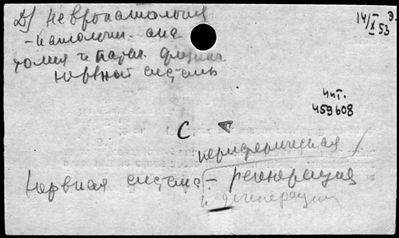 Д) Невропатология
- патологич. ана
томия и патол. физиол.
нервной системы
14/I э.
X 53
инт.
459608
С
периферическая
Нервная система - регенерация
и дегенерация